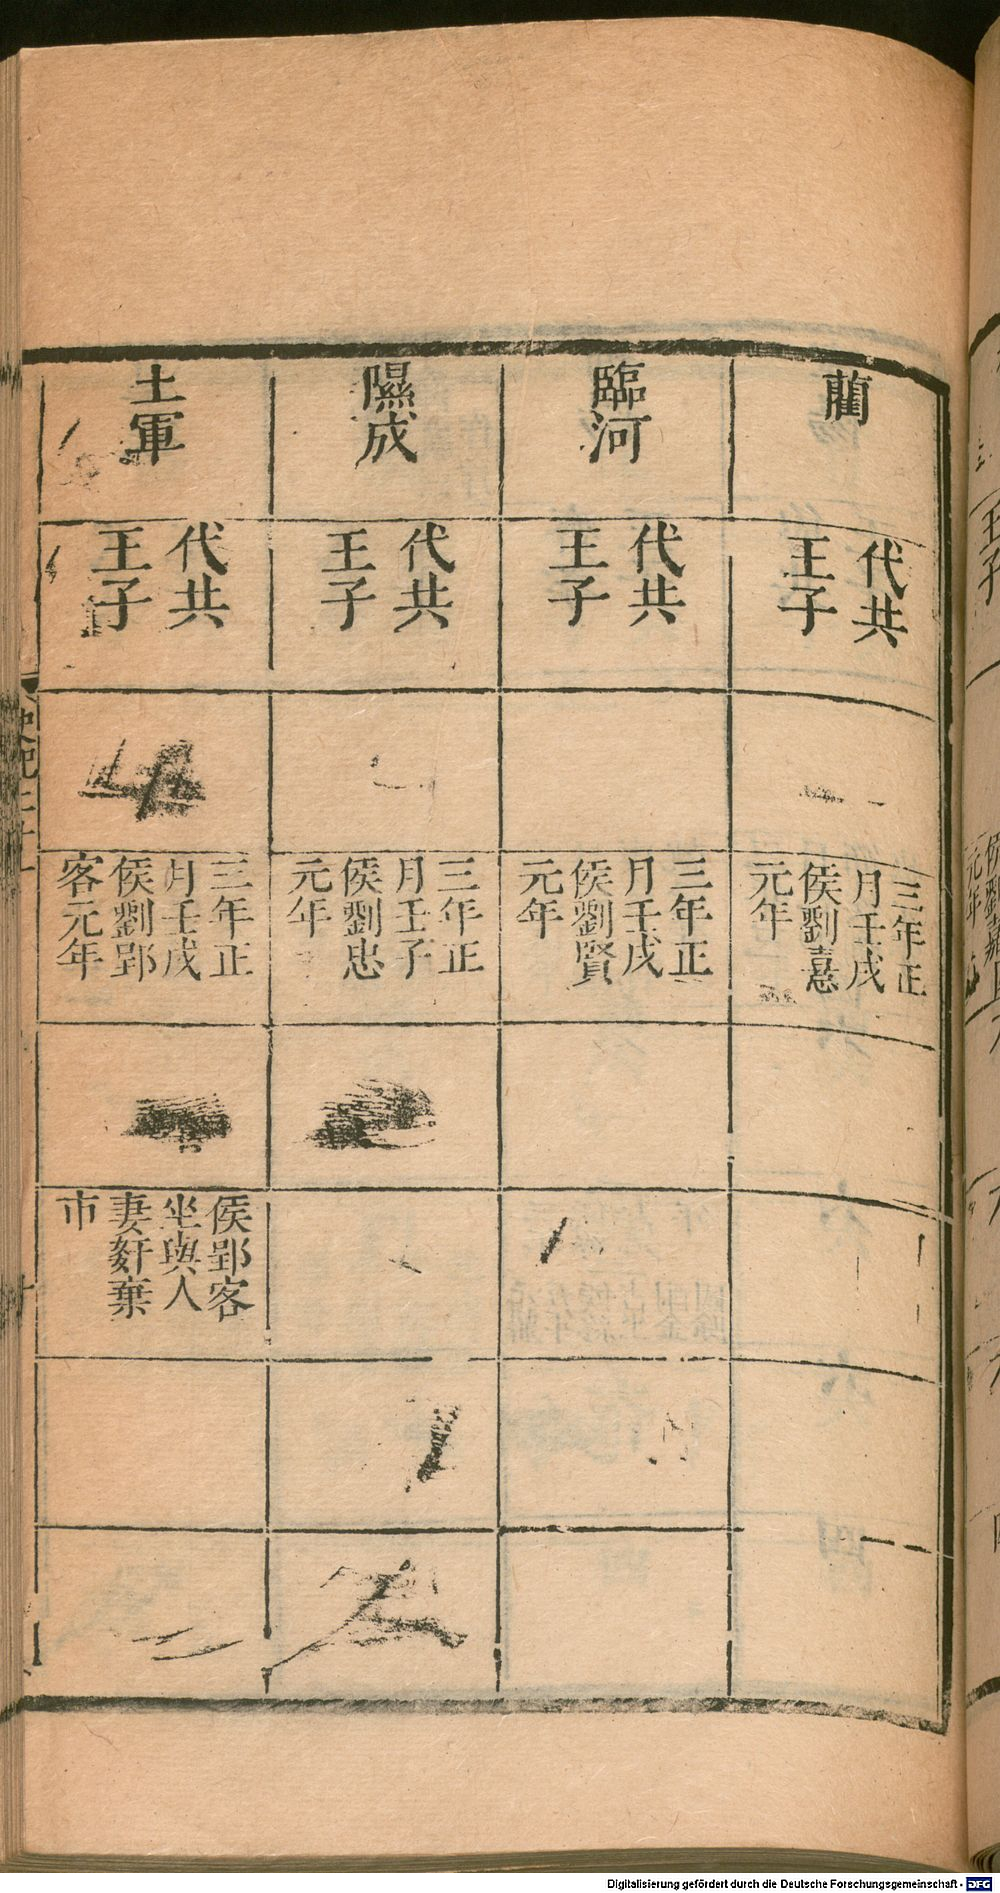 藺
代共
王子
三年正
月壬戌
侯劉憙
元年
臨河
代共
王子
三年正
月壬戌
侯劉賢
元年
隰成
代共
王子
三年正
月壬子
侯劉忠
元年
土軍
代共
王子
三年正
月壬戌
侯劉郢
客元年
侯郢客
坐與人
妻奸棄
市
Digitalisierung gefördert durch die Deutsche Forschungsgemeinschaft - DFG